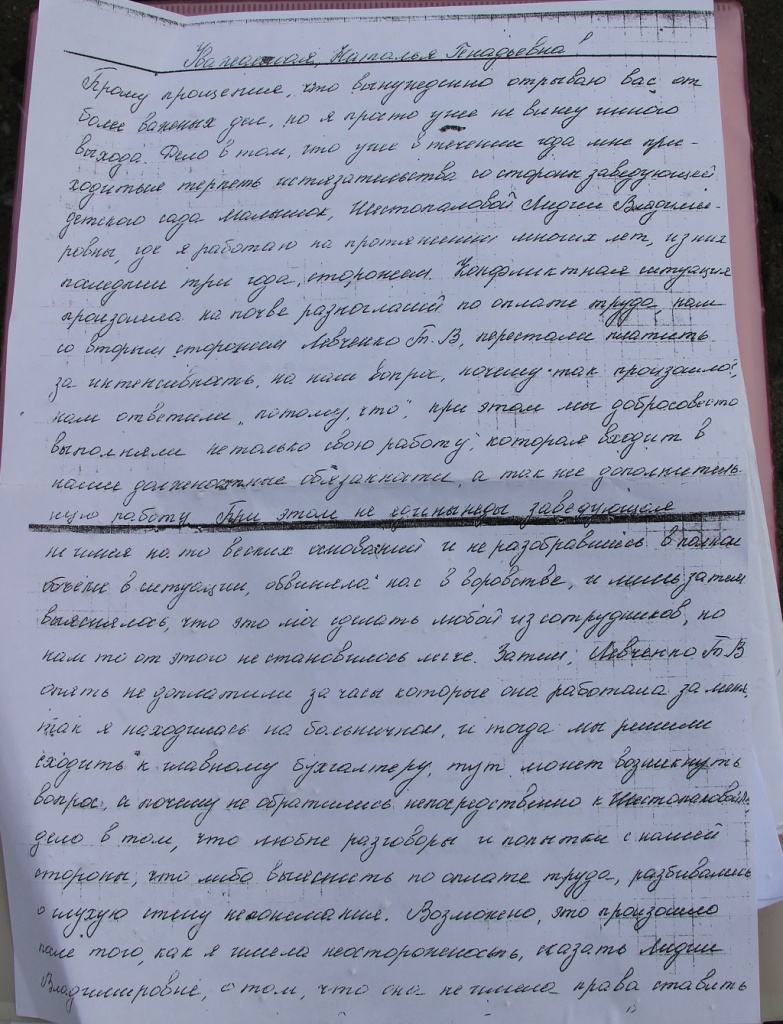 Уважаемая, Наталья Генадьевна!
Прошу прощения, что вынужденно отрываю вас от
более важных дел, но я просто уже не вижу иного
выхода. Дело в том, что уже в течении года мне при-
ходиться терпеть истязательства со стороны заведующей
детского сада Малышок, Шестопаловой Лидии Владими-
ровны, где я работаю на протяжении многих лет, из них
последнии три года, сторожем. Конфликтная ситуация
произошла на почве разногласий по оплате труда, нам
со вторым сторожем Левченко Т.В, перестали платить
за интенсивность, на наш вопрос, почему так произошло?,
нам ответили "потому, что", при этом мы добросовесто
выполняли не только свою работу, которая входит в
наши должностные обязанности, а так же дополнитель-
ную работу. При этом не единыжды заведующая
не имея на то веских оснований и не разобравшись в полном
в ситуации, обвиняла нас в воровстве, и лишь затем
выяснялось, что это мог сделать любой из сотрудников, но
нам то от этого не становилось легче. Затем, Левченко Т.В
опять не доплатили за часы которые она работала за меня,
так я находилась на больничном, и тогда мы решили
сходить к главному бухгалтеру, тут может возникнуть
вопрос, а почему не обратились непосредственно к Шестопаловой,
дело в том, что любые разговоры и попытки с нашей
стороны, что либо выяснить по оплате труда, разбивались
о глухую стену непонимания. Возможно, это произошло
после того, как я имела неосторожность, сказать Лидии
Владимировне, о том, что она не имела права ставить